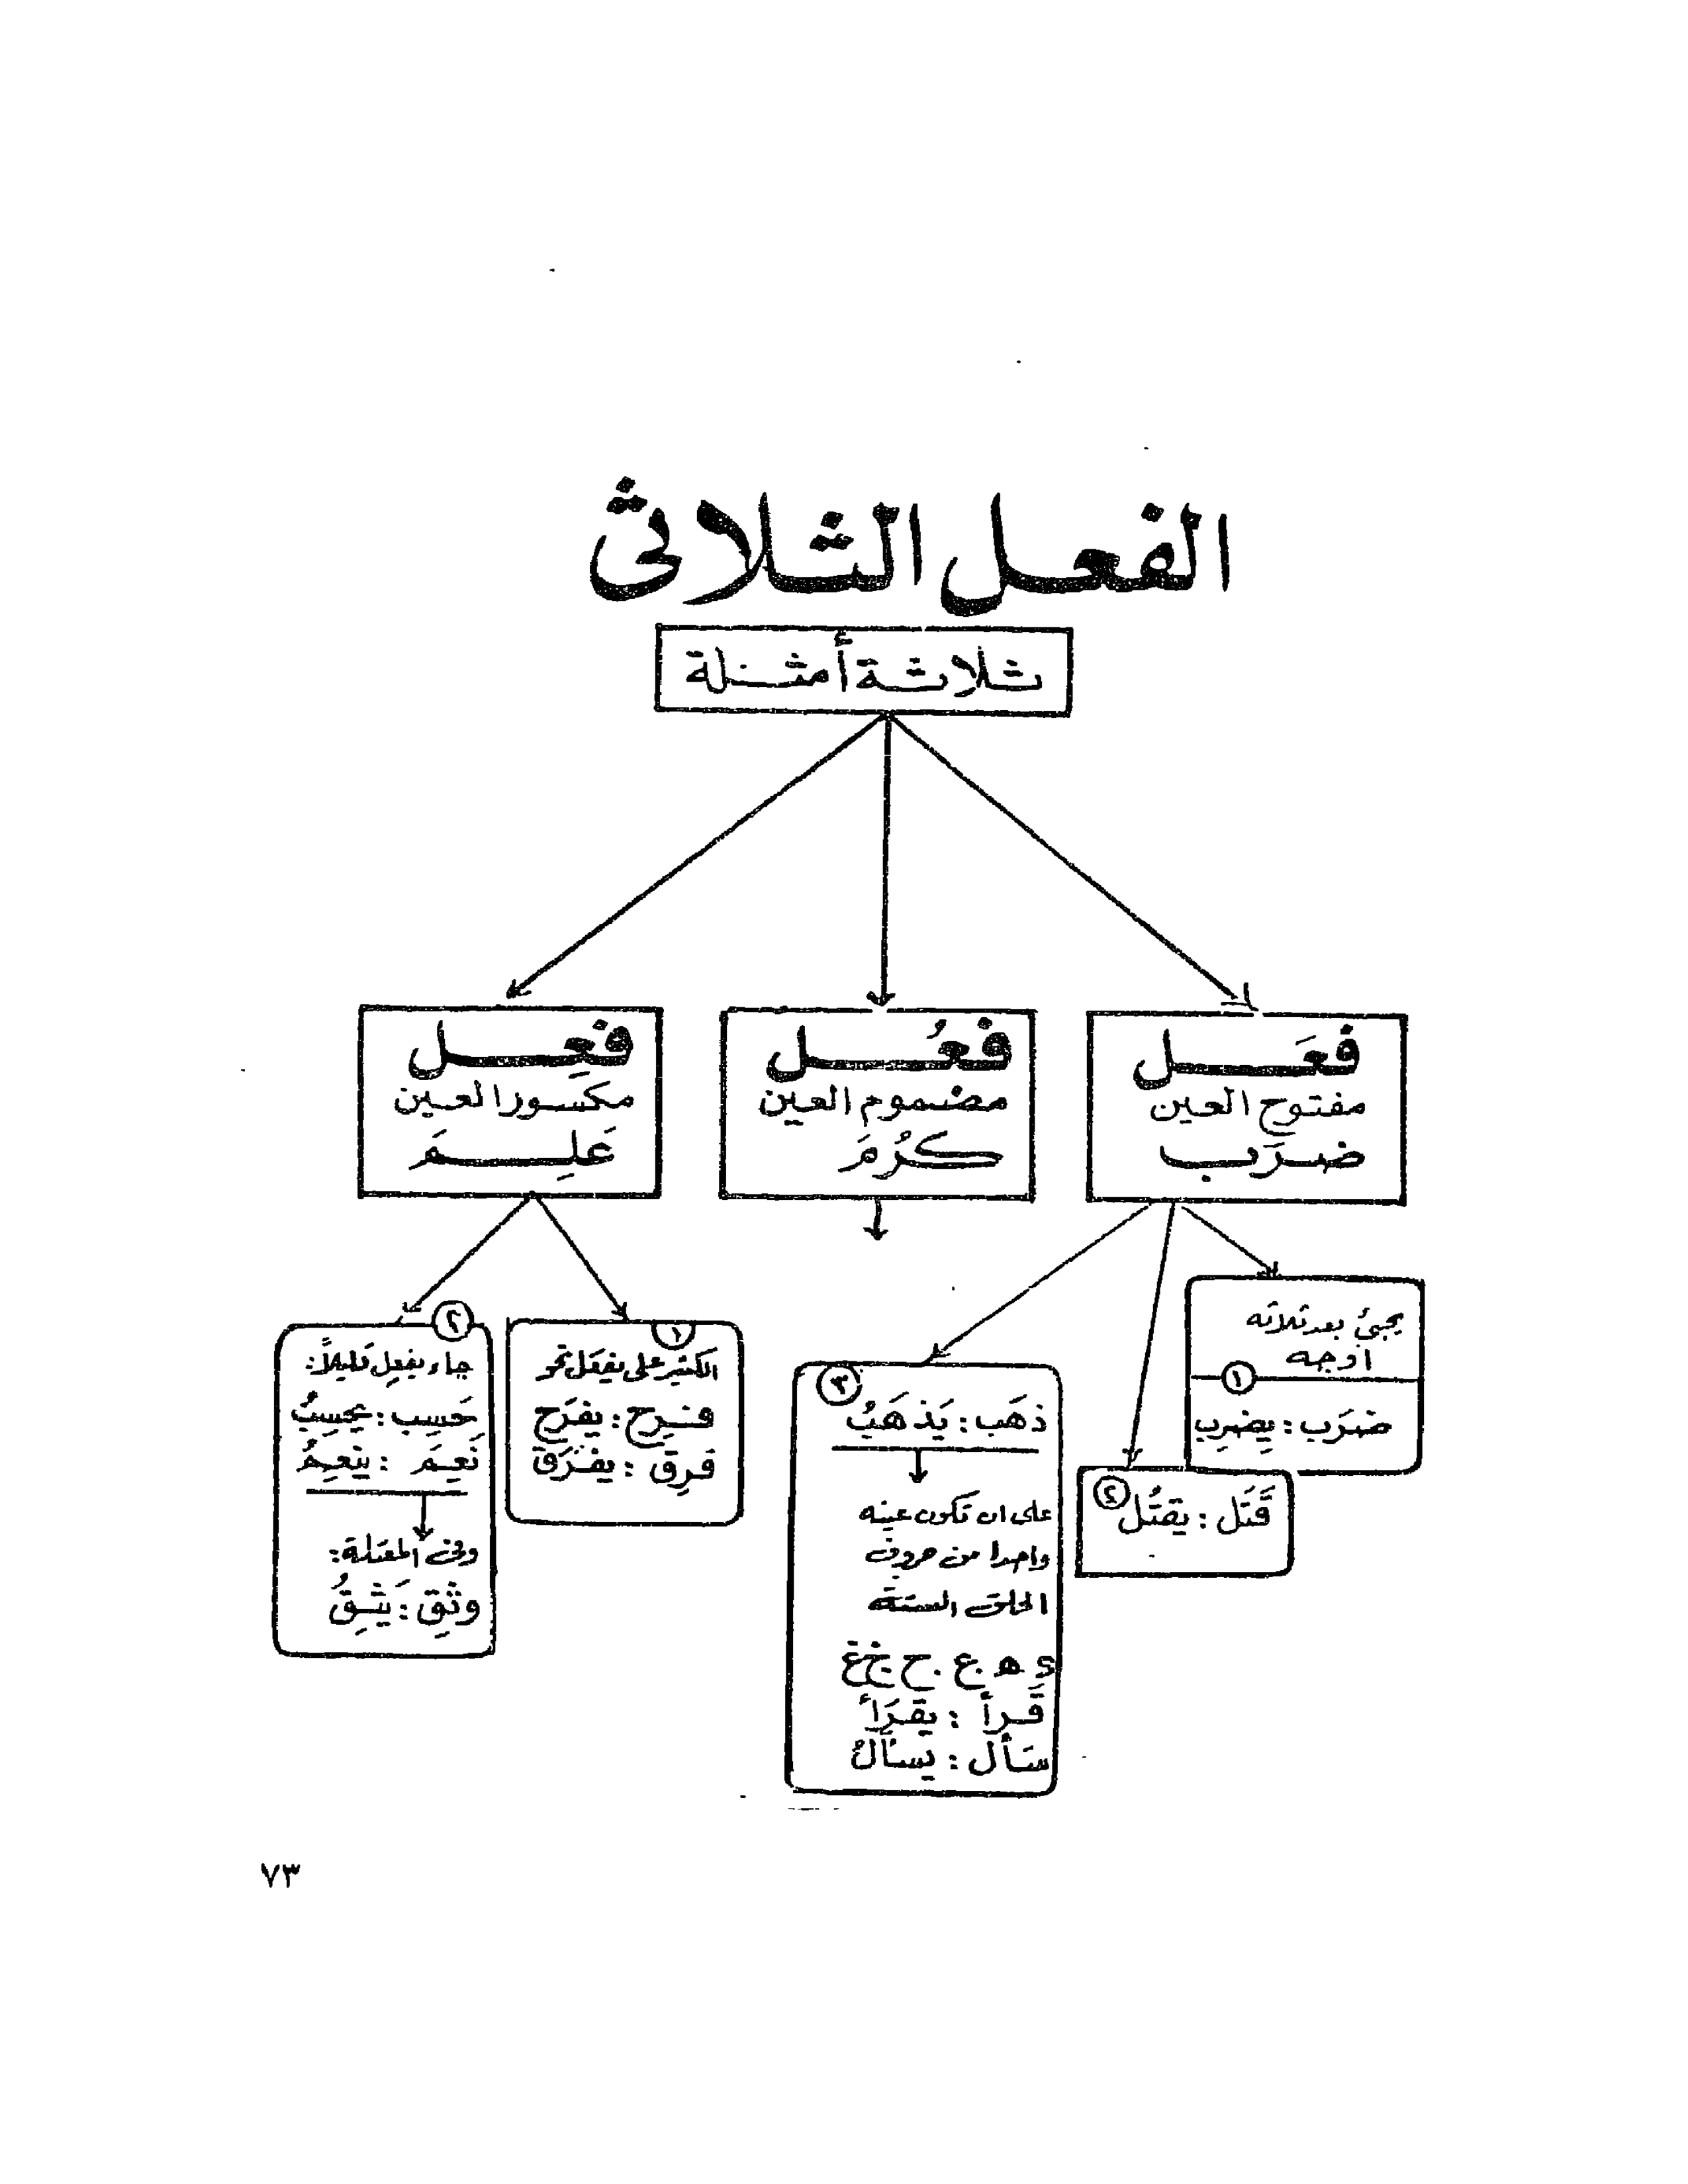 الفعل الثلاثى
ثلاثة أمثلة
فعَل
مفتوح العين
ضرَب
فعُل
مضموم العين
كرُمَ
فعِل
مكسور العين
عَلِمَ
يجيئ بعد ثلاثه
اوجه
١
ضرَب : يضرِب
٢
قَتَل : يقتُل
٣
ذهَب : يَذهَبُ
على ان تكون عينه
واحدا من حروف
الحلق الستة
ء ه ع ح خ غ
قَرأ : يقرَأ
سَأل : يسألُ
١
الكثير على يفعَل نحو
فرِح : يفرَح
فرِق : يفرَق
٢
جاء يفعِل قليلاً:
حَسِب : يحسِبُ
نَعِمَ : ينعِمُ
وفى المعتلة:
وثِق : يَثِقُ
٧٣